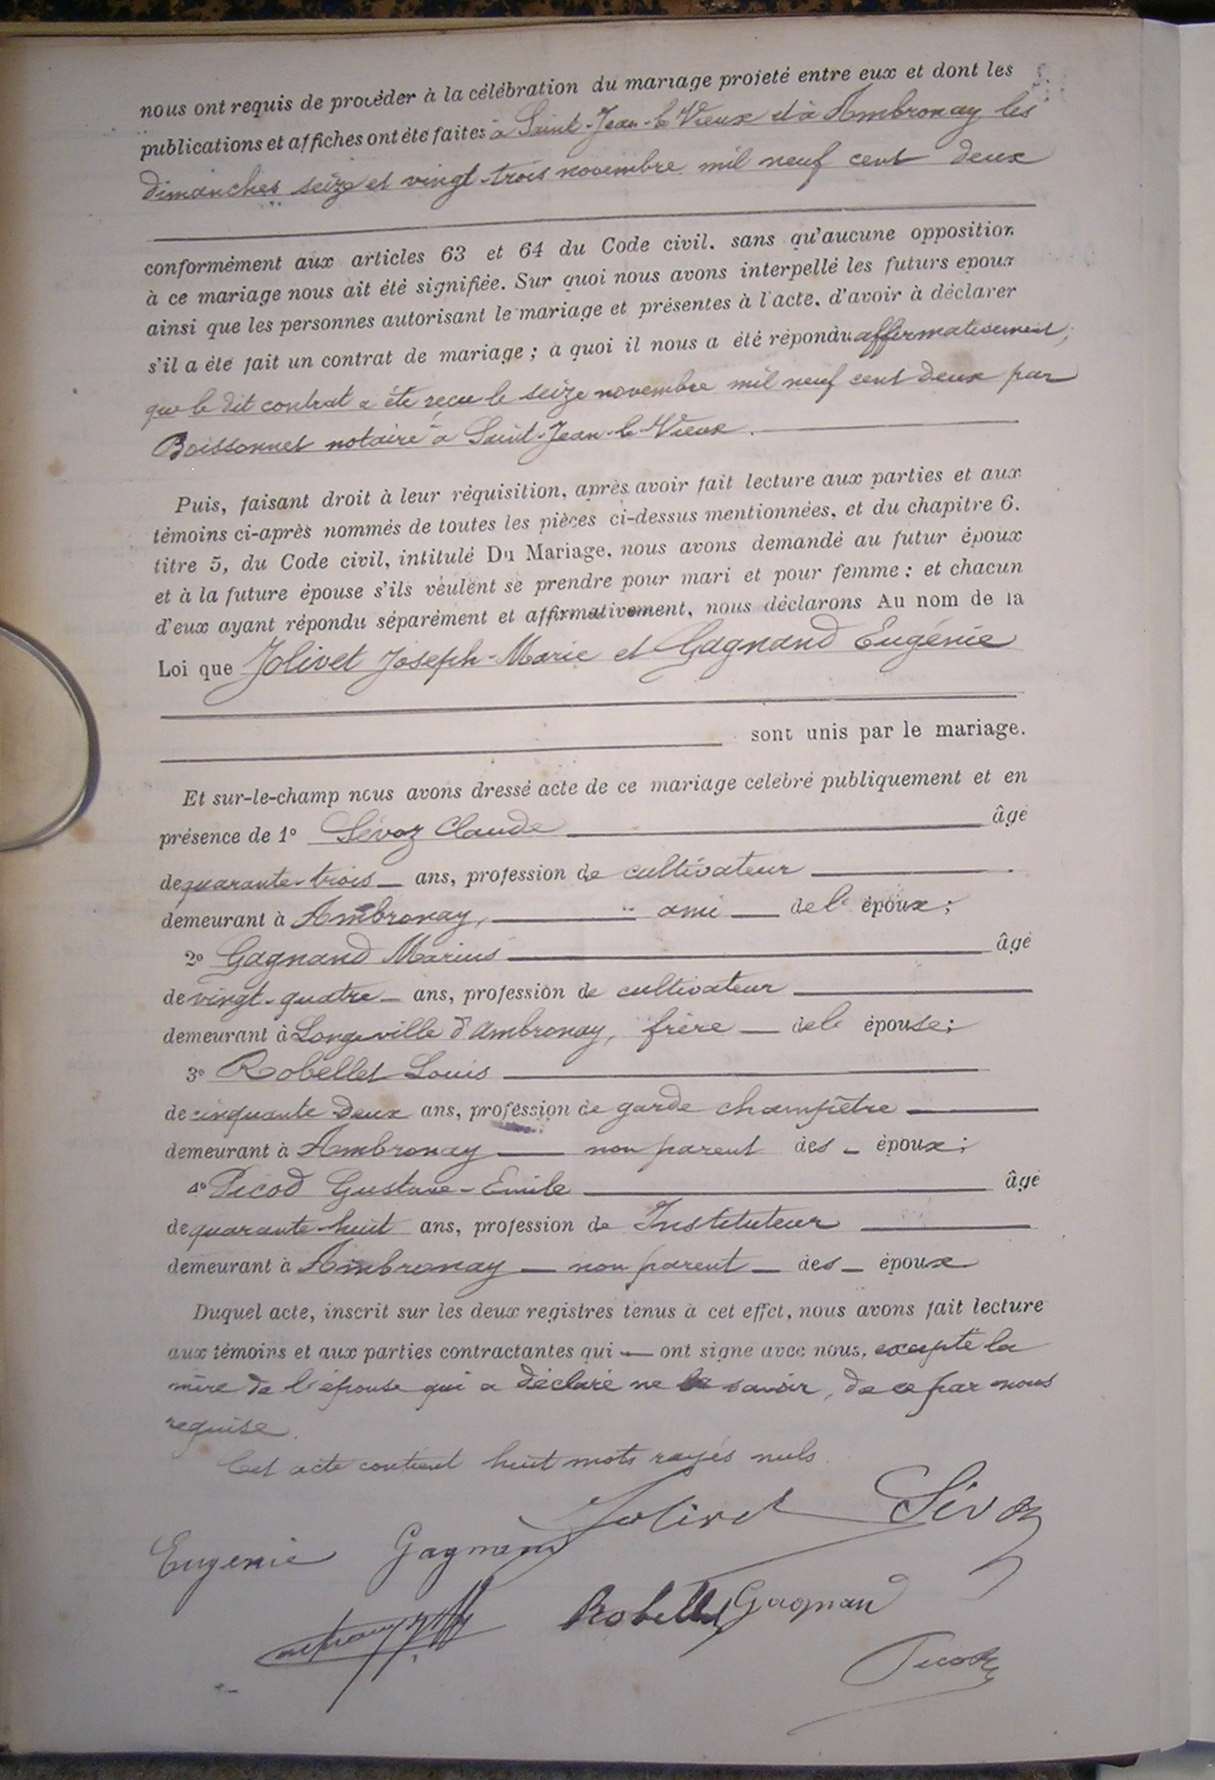 nous ont requis de procéder à la célébration du mariage projeté entre eux et dont les
publications et affiches ont été faites à Saint-Jean-le-Vieux et à Ambronay les
dimanches seize et vingt-trois novembre mil neuf cent deux
conformément aux articles 63 et 64 du Code civil, sans qu'aucune opposition
à ce mariage nous ait été signifiée. Sur quoi nous avons interpellé les futurs epoux
ainsi que les personnes autorisant le mariage et présentes à l'acte, d'avoir à déclarer
s'il a été fait un contrat de mariage ; à quoi il nous a été répondu affirmativement,
que le dit contrat a été reçu le seize novembre mil neuf cent deux par
Boissonnet notaire à Saint-Jean-le-Vieux.
Puis, faisant droit à leur réquisition, après avoir fait lecture aux parties et aux
témoins ci-après nommés de toutes les pièces ci-dessus mentionnées, et du chapitre 6,
titre 5, du Code civil, intitulé Du Mariage, nous avons demandé au futur époux
et à la future épouse s'ils veulent se prendre pour mari et pour femme ; et chacun
d'eux ayant répondu séparément et affirmativement, nous déclarons Au nom de la
Loi que Jolivet Joseph-Marie et Gagnand Eugénie
sont unis par le mariage.
Et sur-le-champ nous avons dressé acte de ce mariage celebré publiquement et en
présence de 1º Sévoz Claude âgé
de quarante-trois ans, profession de cultivateur
demeurant à Ambronay, ami de l' époux ;
2º Gagnand Marius âgé
de vingt-quatre ans, profession de cultivateur
demeurant à Longeville d'Ambronay, frère de l' épouse ;
3º Robellet Louis
de cinquante deux ans, profession de garde champêtre
demeurant à Ambronay non parent des époux ;
4º Picod Gustave-Emile âgé
de quarante-huit ans, profession de Instituteur
demeurant à Ambronay non parent des époux
Duquel acte, inscrit sur les deux registres tenus à cet effet, nous avons fait lecture
aux témoins et aux parties contractantes qui ont signé avec nous, excepté la
mère de l'épouse qui a déclaré ne savoir, de ce par nous
requise.
Cet acte contient huit mots rayés nuls.
Jolivet Sévoz
Eugenie Gagnand
Robellet Gagnand
Picod